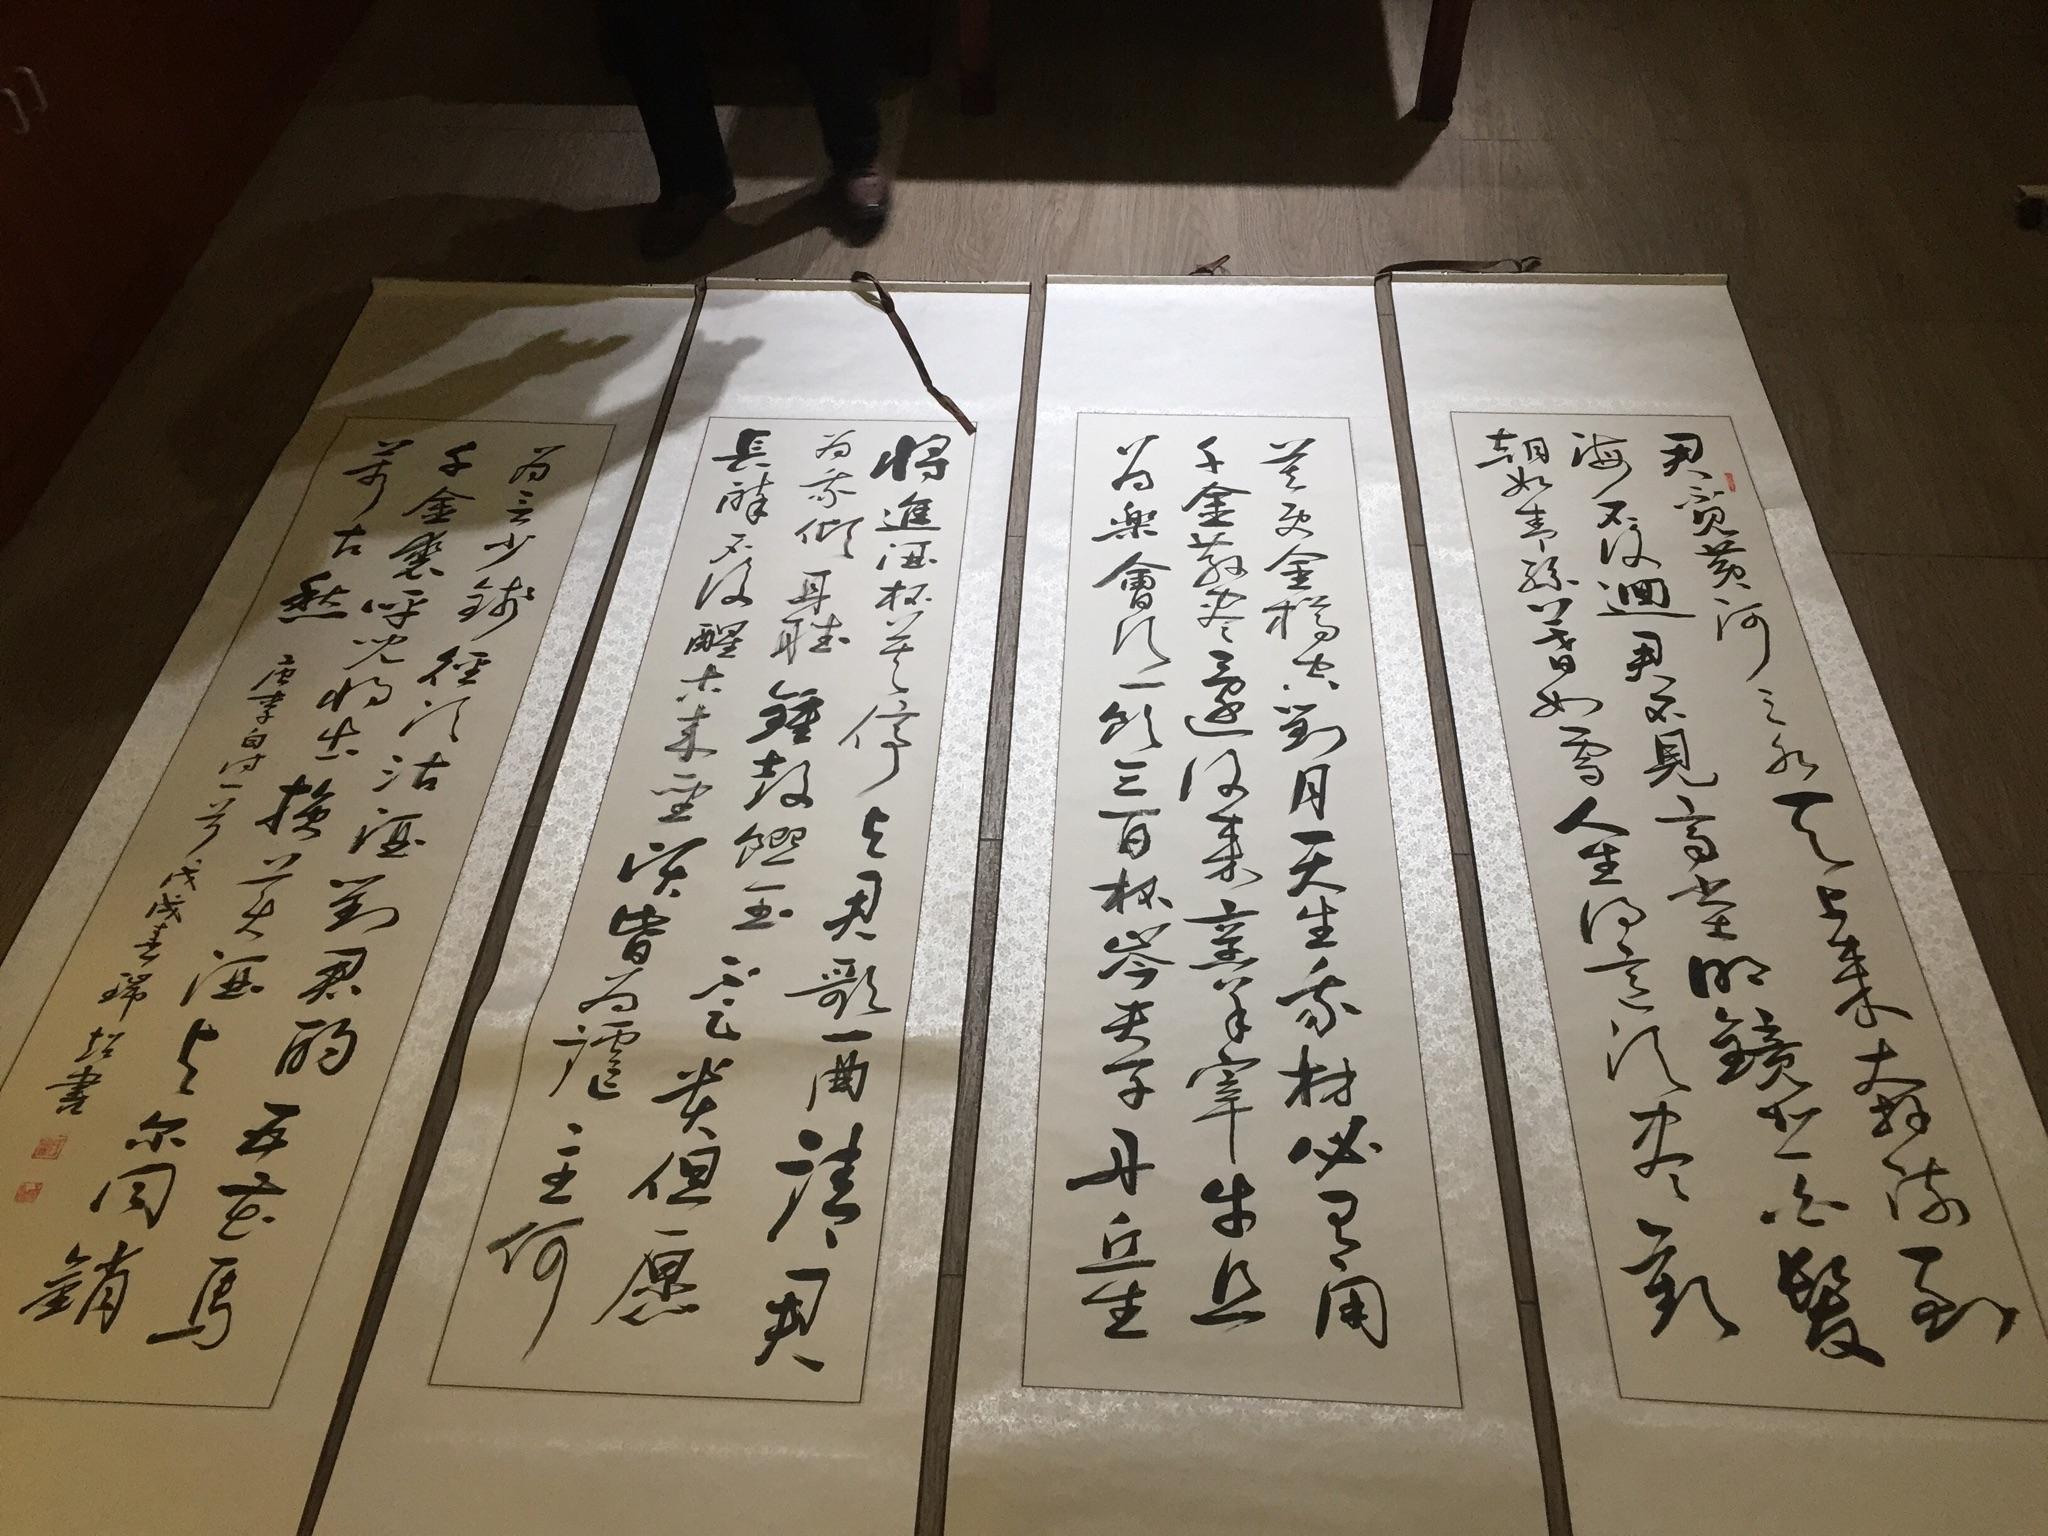 君不見黃河之水天上來奔流到
海不復迴君不見高堂明鏡悲白髮
朝如青絲暮如雪人生得意須盡歡
莫使金樽空對月天生我材必有用
千金散盡還復來烹羊宰牛且
為樂會須一飲三百杯岑夫子丹丘生
將進酒杯莫停與君歌一曲請君
為我傾耳聽鐘鼓饌玉不足貴但願
長醉不復醒古來聖賢皆為謔主何
為言少錢徑須沽酒對君酌五花馬
千金裘呼兒將出換美酒與尔同銷
萬古愁 唐李白詩一首戊戌春瑞松書